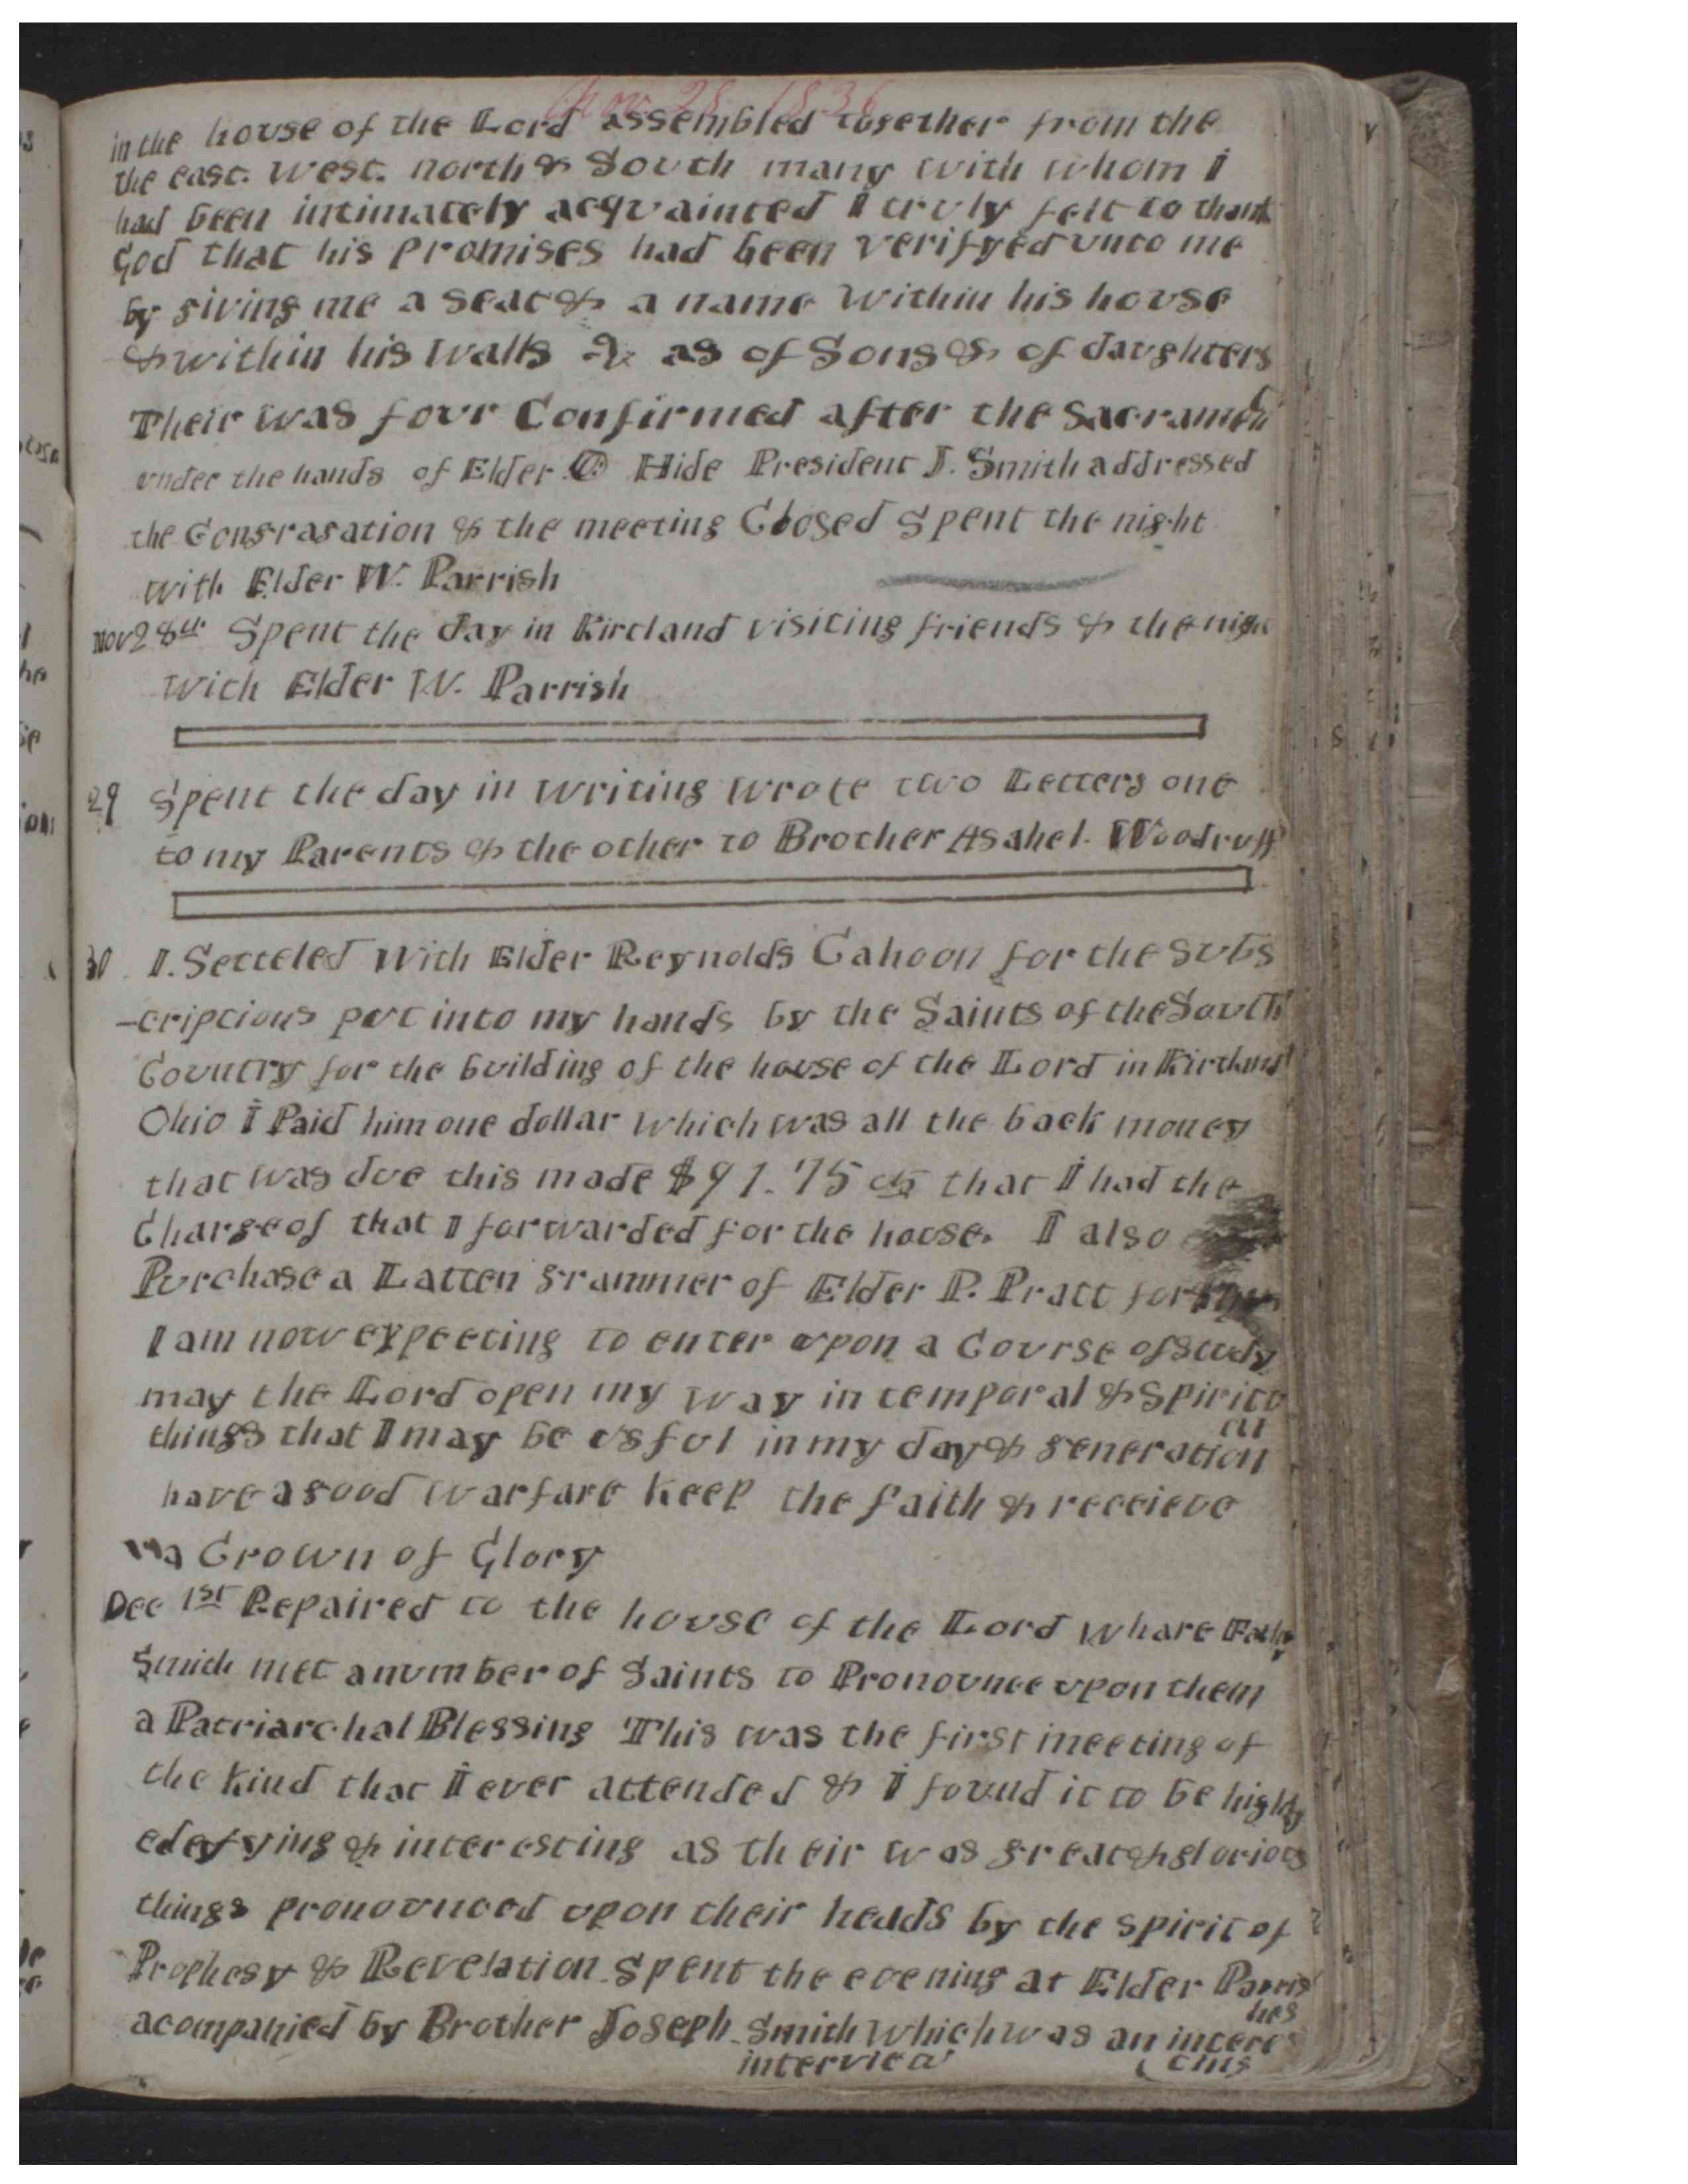 Nov. 28 1836
in the house of the Lord assembled together from the
the east. west. north & South many with whom I
had been intimately acquainted I truly felt to thank
God that his promises had been verifyed unto me
by giving me a seat & a name within his house
& within his walls & as of Sons & of daughters
Their was four Confirmed after the Sacrament
under the hands of Elder O Hide President J. Smith addressed
the Congragation & the meeting Closed Spent the night
with Elder W. Parrish
Nov 28th Spent the day in Kirtland visiting friends & the night
with Elder W. Parrish
29 Spent the day in writing wrote two Letters one
to my Parents & the other to Brother Asahel. Woodruff
30 I. Setteled With Elder Reynolds Cahoon for the subs
-criptions put into my hands by the Saints of the South
Country for the building of the house of the Lord in Kirtland
Ohio I Paid him one dollar which was all the back money
that was due this made $91.75 cts that I had the
Charge of that I forwarded for the house. I also
Purchase a Latten grammer of Elder P. Pratt for
I am now expecting to enter upon a Course of study
may the Lord open my way in temporal & spiritu
al
things that I may be usful in my day & generation
have a good warfare keep the faith & recieive
a Crown of Glory
Dec 1st Repaired to the house of the Lord whare Father
Smith met a number of Saints to Pronounce upon them
a Patriarchal Blessing This was the first meeting of
the kind that I ever attended & I found it to be highly
edefying & interesting as their was great & glorious
things pronounced upon their heads by the spirit of
Prophesy & Revelation Spent the evening at Elder Parris
hes
acompanied by Brother Joseph Smith which was an interes
ting
interview